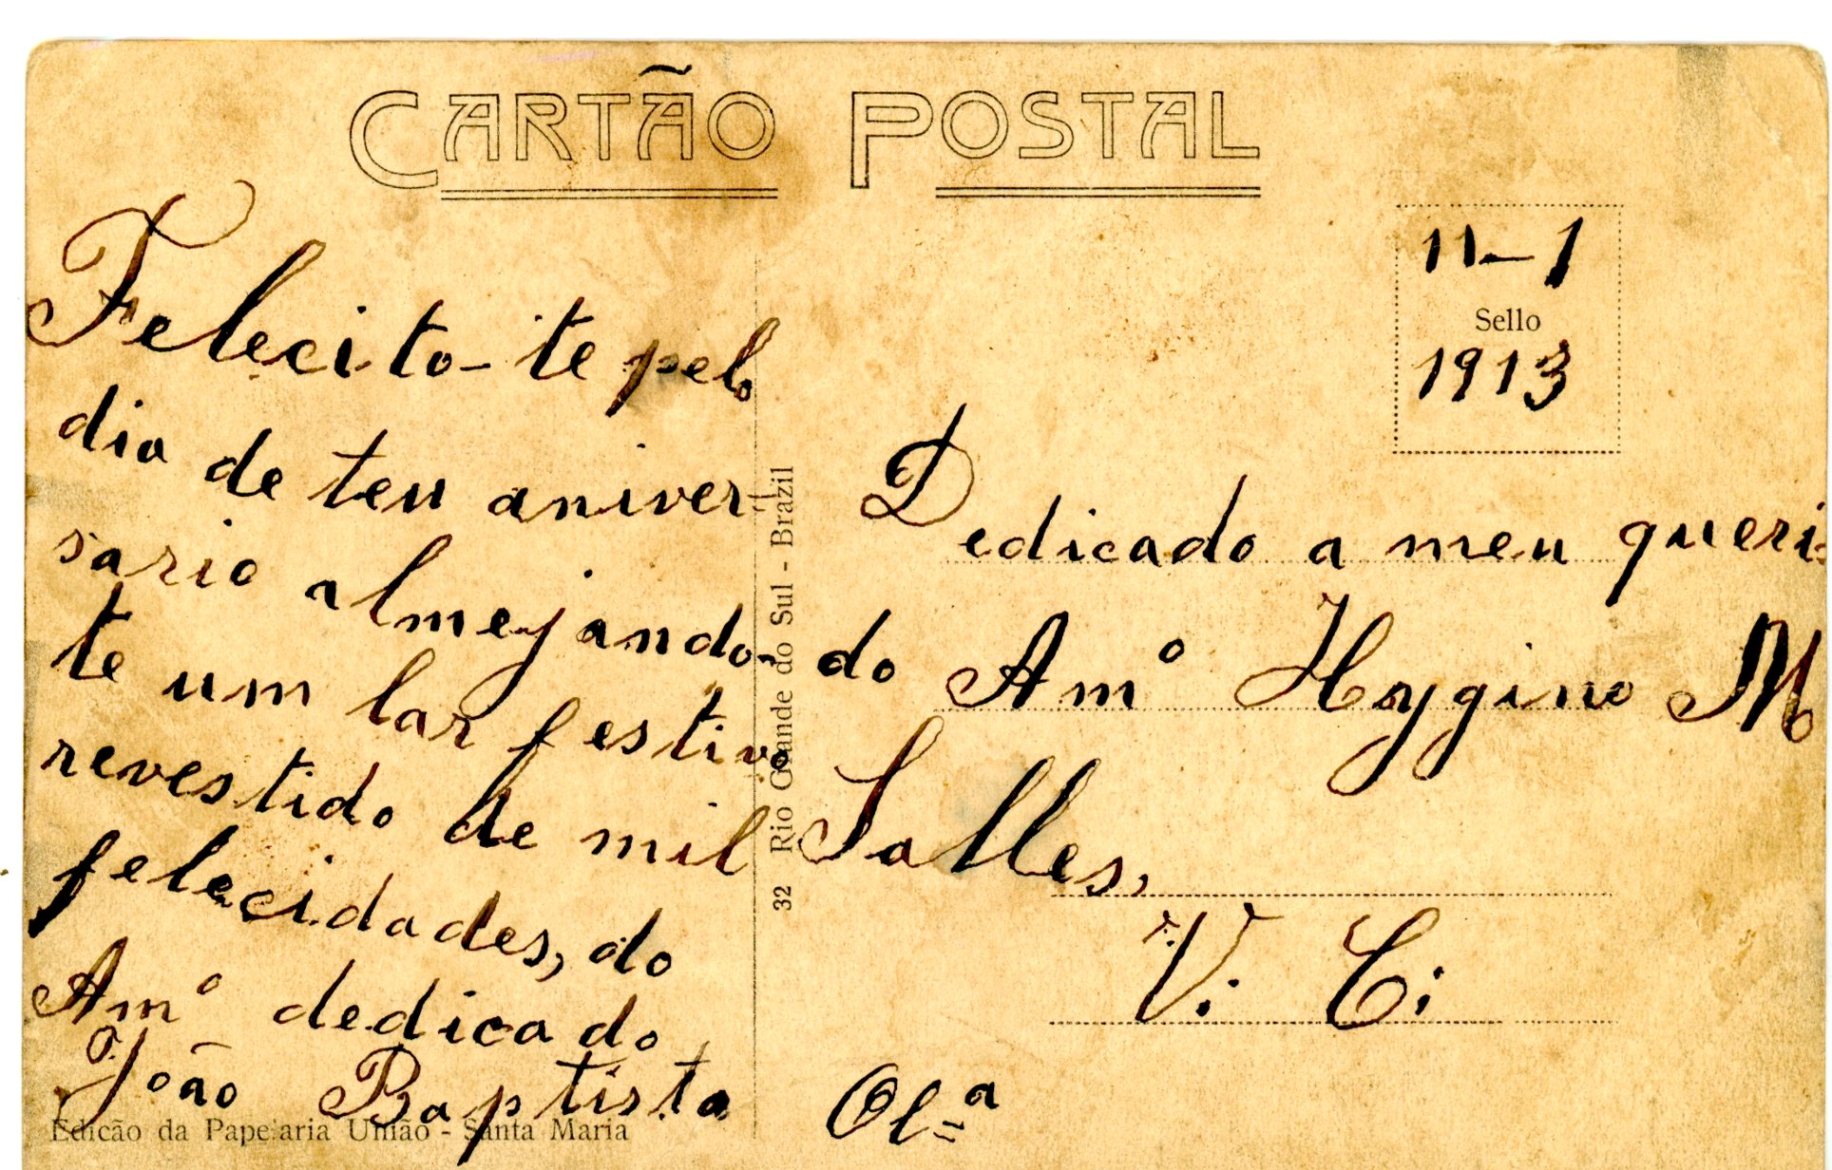 CARTÃO POSTAL
Felecito-te pelo
dia de teu aniver-
sario almejando-
te um lar festivo
revestido de mil
felecidades, do
Amº dedicado
João Baptista Olª
Edicão da Papelaria União - Santa Maria
32 Rio Grande do Sul - Brazil
11-1
Sello
1913
Dedicado a meu queri-
do Amº Hygino M
Salles,
V. C.